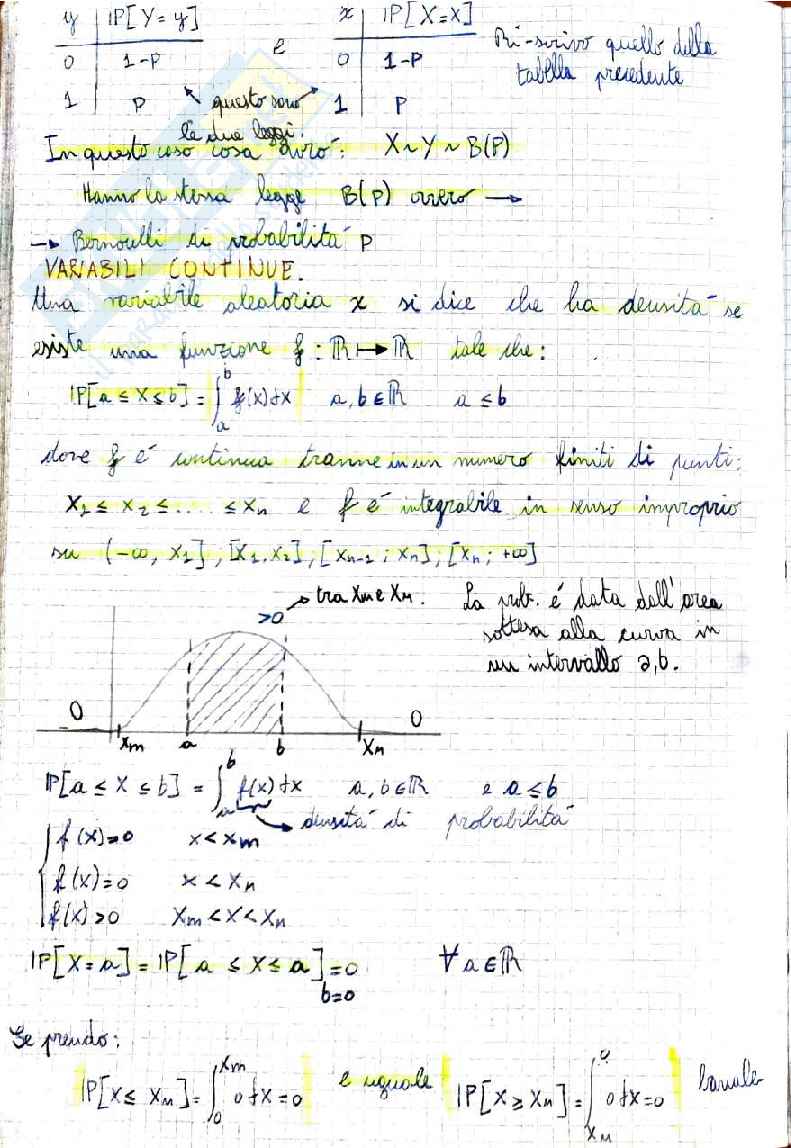 y | IP[Y = y] e x | IP[X=x] Ri-scrivo quello della
0 | 1-P 0 | 1-P tabella precedente
1 | P questo sono 1 | P
le due leggi.
In questo caso cosa avrò: X ~ Y ~ B(P)
Hanno la stessa legge B(P) ovvero →
→ Bernoulli di probabilità P
VARIABILI CONTINUE.
Una variabile aleatoria x si dice che ha densità se
esiste una funzione f : ℝ ↦ ℝ tale che:
IP[a ≤ X ≤ b] = ∫_a^b f(x)dx a, b ∈ ℝ a ≤ b
dove f é continua tranne in un numero finiti di punti:
X1 ≤ x2 ≤ .... ≤ xn e f é integrabile in senso improprio
su (-∞, X1]; [X1, X2]; [Xn-1; Xn]; [Xn; +∞]
>0 tra Xm e XM. La prob. é data dall'area
sottesa alla curva in
un intervallo a,b.
0 0
Xm a b XM
IP[a ≤ X ≤ b] = ∫_a^b f(x)dx a, b ∈ ℝ e a ≤ b
densità di probabilità
f(x)=0 x < xm
f(x)=0 x < xn
f(x)>0 Xm < X < Xn
IP[X=a] = IP[a ≤ X ≤ a] = 0 ∀ a ∈ ℝ
b=0
Se prendo:
IP[X ≤ Xm] = ∫_0^Xm 0 dx = 0 e uguale IP[X ≥ XM] = ∫_XM 0 dx = 0